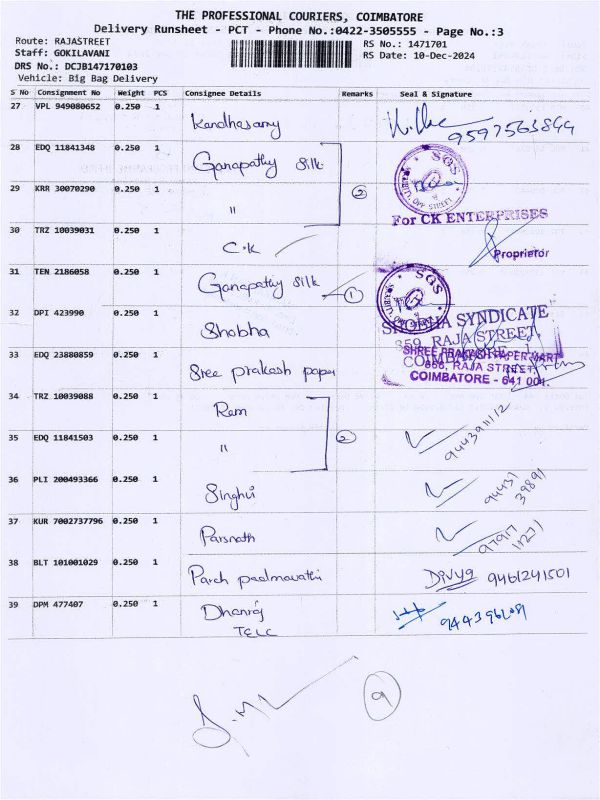 THE PROFESSIONAL COURIERS, COIMBATORE
Delivery Runsheet - PCT - Phone No.:0422-3505555 - Page No.:3
Route: RAJASTREET
RS No.: 1471701
Staff: GOKILAVANI
RS Date: 10-Dec-2024
DRS No.: DCJB147170103
Vehicle: Big Bag Delivery
S No Consignment No Weight PCS Consignee Details Remarks Seal & Signature
27 VPL 949080652 0.250 1 Kandhasamy
28 EDQ 11841348 0.250 1 Ganapathy Silk
SGS
OPP STREET
29 KRR 30070290 0.250 1 " 2
For CK ENTERPRISES
30 TRZ 10039031 0.250 1 C.K
Proprietor
31 TEN 2186058 0.250 1 Ganapathy Silk 1
SGS
32 DPI 423990 0.250 1 Shobha
SHOBHA SYNDICATE
859, RAJA STREET,
COIMBATORE
33 EDQ 23880859 0.250 1 Sree prakash paper
SHREE PRAKASH PAPER MART
866, RAJA STREET,
COIMBATORE - 641 001.
34 TRZ 10039088 0.250 1 Ram
35 EDQ 11841503 0.250 1 " 2
36 PLI 200493366 0.250 1 Singhvi
94431
39891
37 KUR 7002737796 0.250 1 Parsnath
38 BLT 101001029 0.250 1 Parch padmavathi Divya 9461241501
39 DPM 477407 0.250 1 Dhanraj
TELC
9